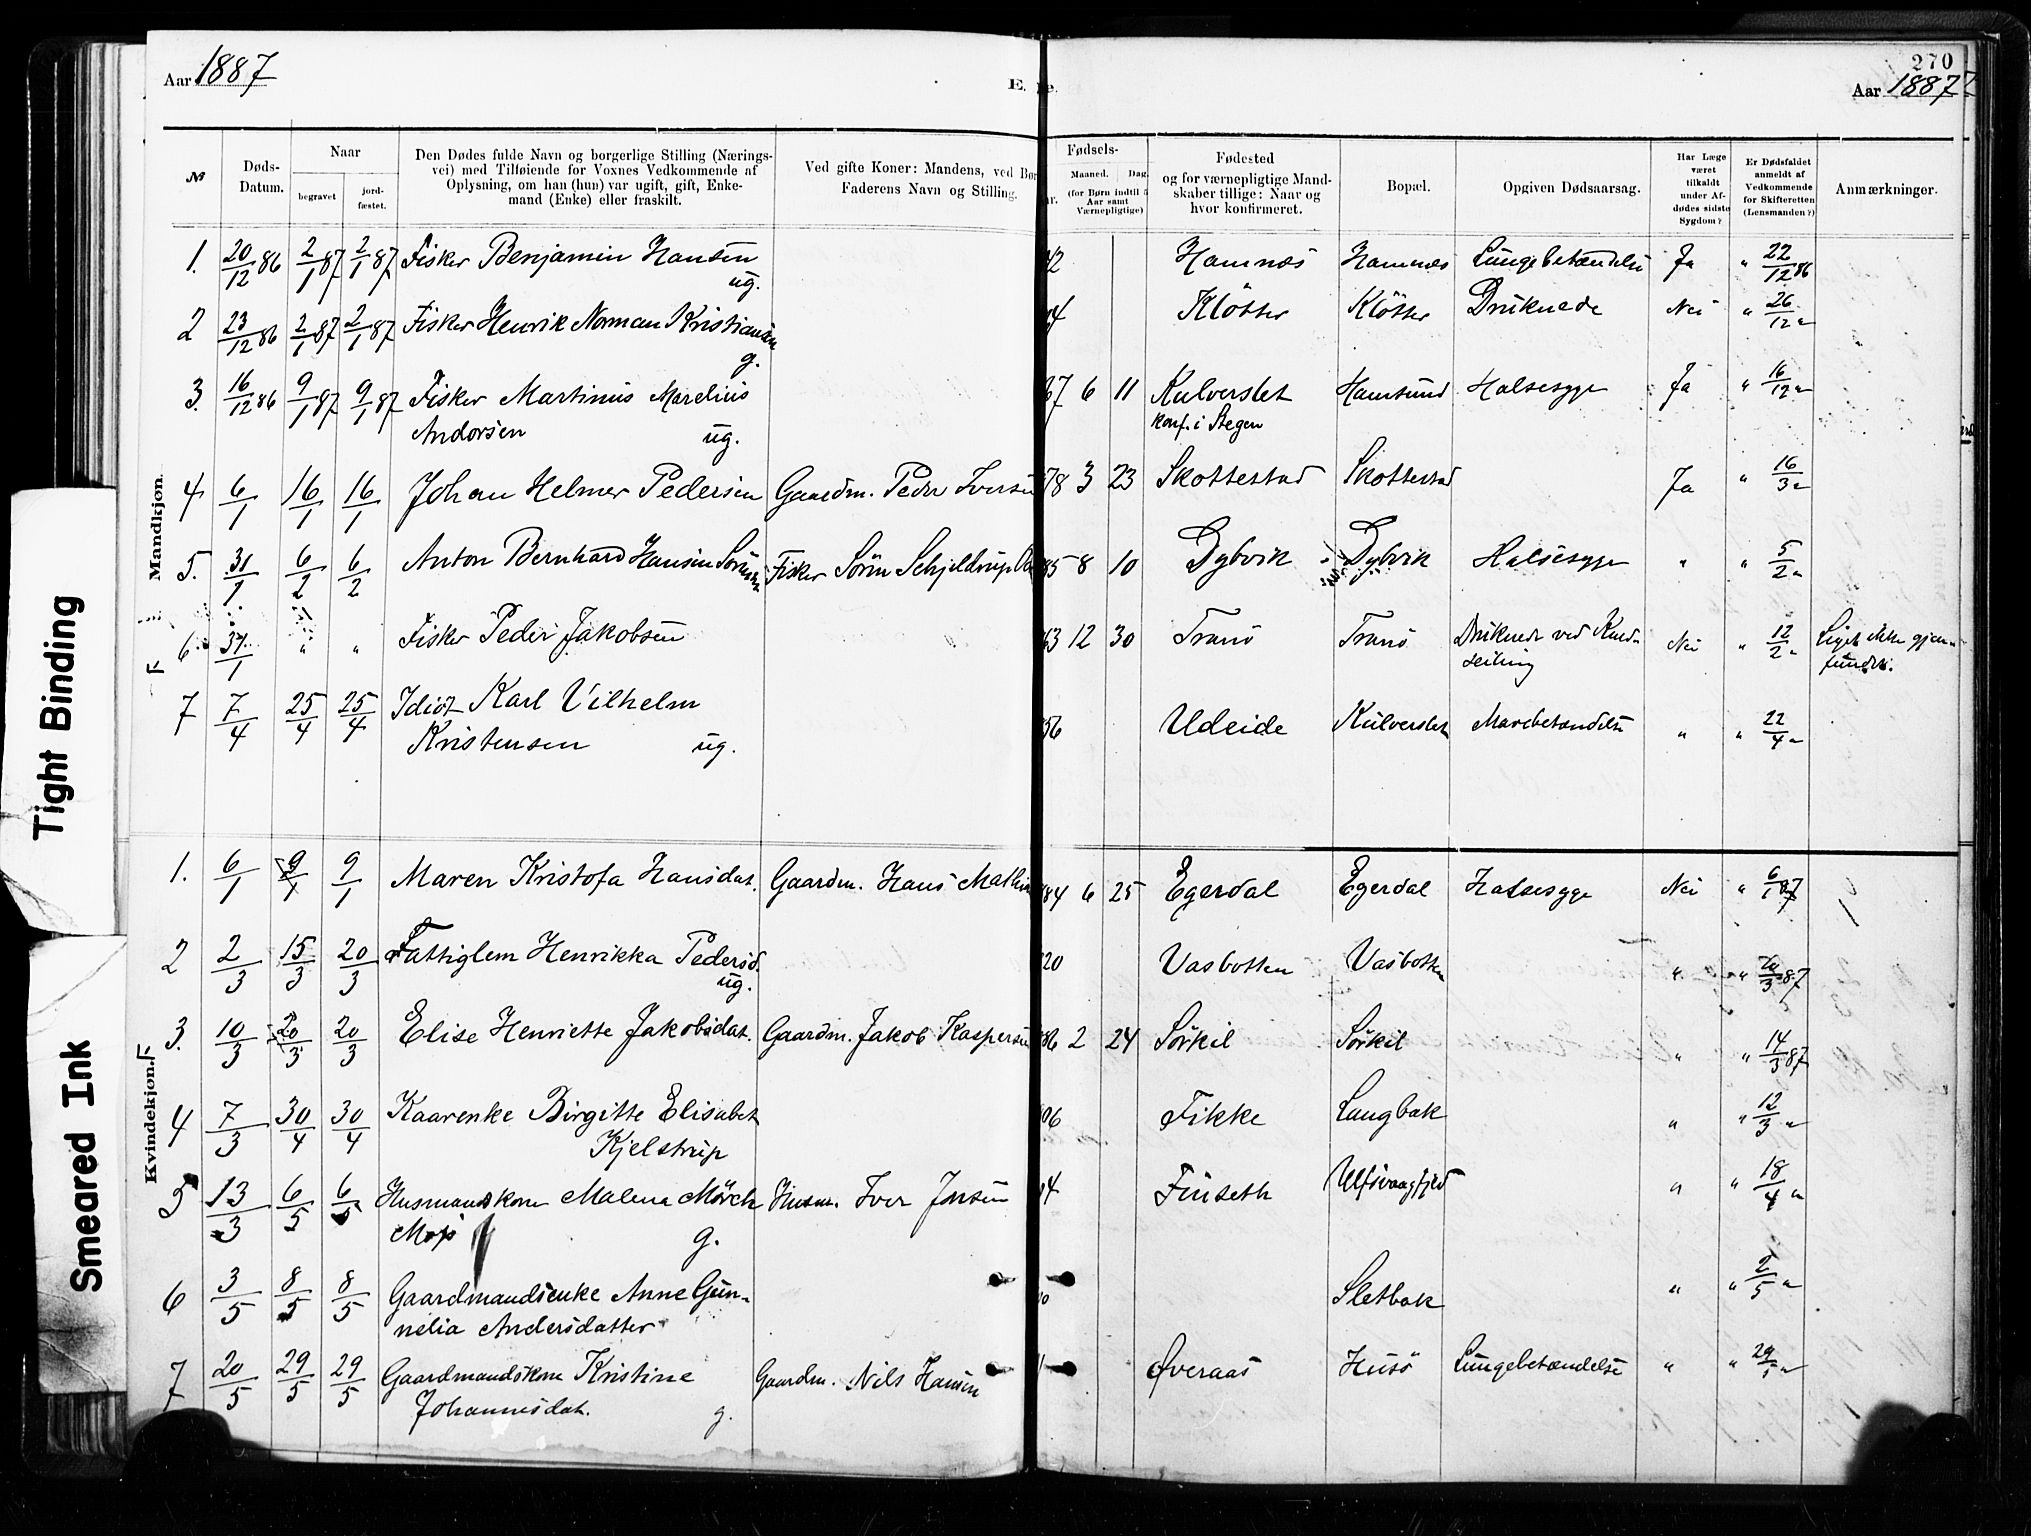 270
Aar 1887
E.
e.
Aar 1887
Tight Binding
Smeared Ink
№
Døds-
Datum.
Naar
begravet
jord-
fæstet.
Den Dødes fulde Navn og borgerlige Stilling (Nærings-
vei) med Tilføiende for Voxnes Vedkommende af
Oplysning, om han (hun) var ugift, gift, Enke-
mand (Enke) eller fraskilt.
Ved gifte Koner: Mandens, ved Bør
Faderens Navn og Stilling.
Fødsels-
Maaned. Dag
(for Børn indtil 5
Aar samt
Værnepligtige)
Fødested
og for værnepligtige Mand-
skaber tillige: Naar og
hvor konfirmeret.
Bopæl.
Opgiven Dødsaarsag.
Har Læge
været
tilkaldt
under Af-
dødes sidste
Sygdom?
Er Dødsfaldet
anmeldt af
Vedkommende
for Skifteretten
(Lensmanden?)
Anmærkninger.
Mandkjøn.
1. 20/12 86 2/1 87 2/1 87 Fisker Benjamin Hansen 42 Hamnæs Hamnæs Lungebetændelse Ja " 22/12 86
ug.
2 23/12 86 2/1 87 2/1 87 Fisker Henrik Norman Kristiansen Kløtter Kløtter Druknede Nei " 26/12 "
g.
3. 16/12 86 9/1 87 9/1 87 Fisker Martinus Marelius 67 6 11 Kulverslet Hamsund Halsesyge Ja " 16/12 "
Andorsen ug. konf. i Stegen
4 6/1 16/1 16/1 Johan Helmer Pedersen Gaardm. Peder Iversen 78 3 23 Skottestad Skottestad Ja " 16/3 "
5. 31/1 6/2 6/2 Anton Bernhard Hansen Sørensen Fisker Sørn Schjeldrup 85 8 10 Dybvik Dybvik Halsesyge " " 5/2 "
6. 31/1 " " Fisker Peder Jakobsen 63 12 30 Tranø Tranø Druknede ved Kuld- Nei " 12/2 " Liget ikke gjen-
seiling funden.
7 7/4 25/4 25/4 Idiot Karl Vilhelm 56 Udeide Kulverslet Mavebetændelse " " 22/4 "
Kristensen ug.
Kvindekjøn.
1. 6/1 9/1 9/1 Maren Kristofa Hansdat. Gaardm. Hans 84 6 25 Egerdal Egerdal Halsesyge Nei " 6/1 87
2 2/3 15/3 20/3 Fattiglem Henrikka Pedersd. 20 Vasbotten Vasbotten " " 20/3 87
ug.
3. 10/3 20/3 20/3 Elise Henriette Jakobsdat. Gaardm. Jakob Kaspersen 86 2 24 Sørkil Sørkil " " 14/3 87
4 7/3 30/4 30/4 Kaarenke Birgitte Elisabet 06 Fikke Langbak " " 12/3 "
Kjelstrup
5 13/3 6/5 6/5 Husmandskone Malena Mörch Husm. Iver Jensen Finseth Ulfsvaagfjeld " " 18/4 "
g.
6 3/5 8/5 8/5 Gaardmandsenke Anne Gun- Sletbak " " 2/5 "
nelia Andersdatter
7 20/5 29/5 29/5 Gaardmandskone Kristine Gaardm. Nils Hansen Øveraas Husø Lungebetændelse " " 29/5 "
Johannesdat. g.